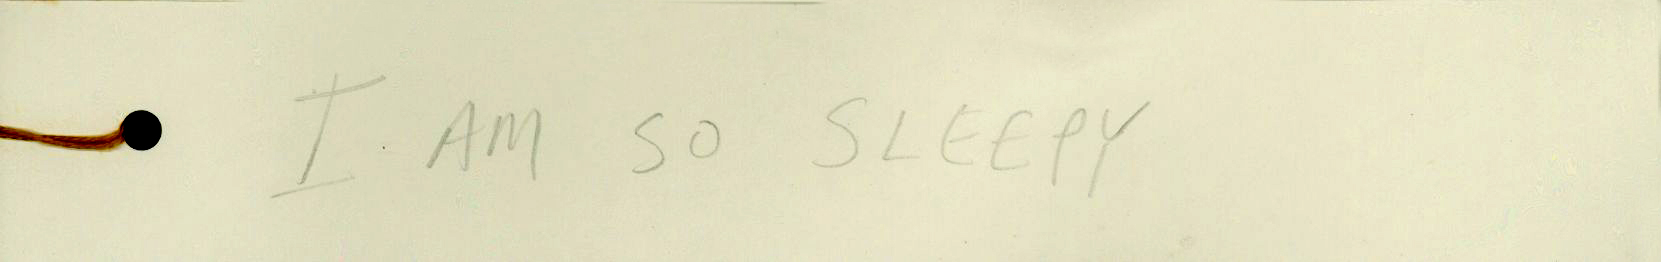 I AM SO SLEEPY